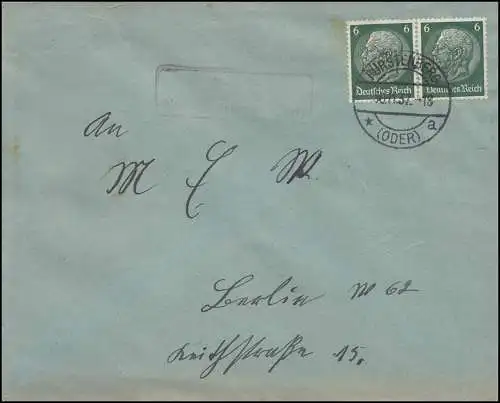 6 6
Deutsches Reich Deutsches Reich
FÜRSTENBERG
(ODER) a
An
M E W.
Berlin W 62
Keithstraße 15.